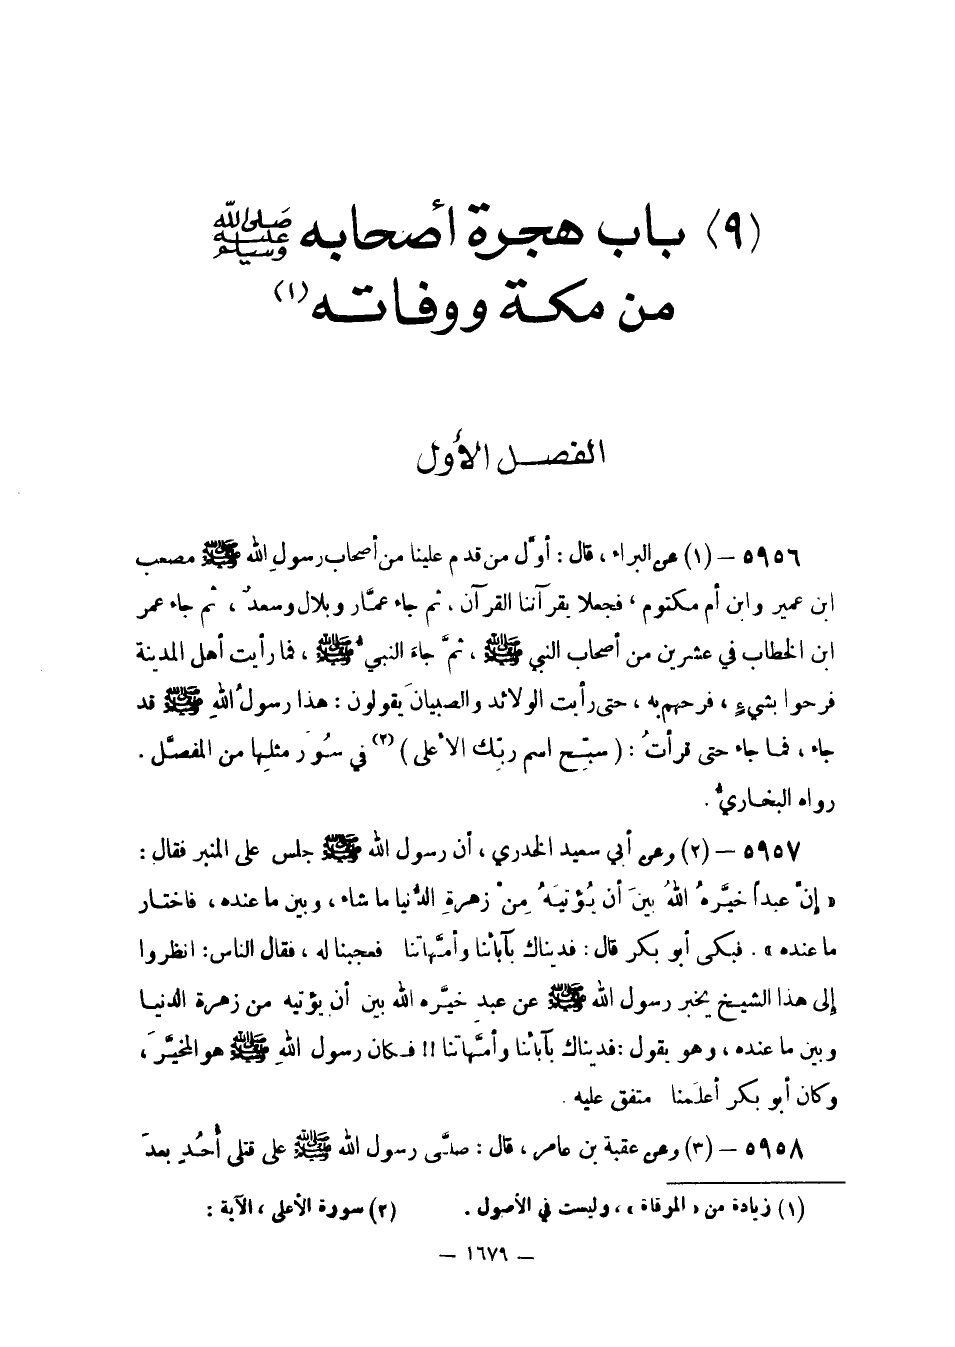 (٩) باب هجرة أصحابه ﷺ
من مكة ووفاته (١)
الفصل الأول
٥٩٥٦ – (١) عن البراء ، قال : أوّل من قدم علينا من أصحاب رسولِ الله ﷺ مصعب
ابن عمير وابن أم مكتوم ، فجعلا يقرآننا القرآن ، ثم جاء عمَّار وبلال وسعدٌ ، ثم جاء عمر
ابن الخطاب في عشرين من أصحاب النبي ﷺ ، ثمَّ جاءَ النبيُّ ﷺ ، فما رأيت أهل المدينة
فرحوا بشيءٍ ، فرحهم به ، حتى رأيت الولائد والصبيانَ يقولون : هذا رسولُ اللهِ ﷺ قد
جاء ، فما جاء حتى قرأتُ : ( سبِّح اسم ربِّك الأعلى ) (٢) في سُوَر مثلها من المفصَّل .
رواه البخاريُّ .
٥٩٥٧ – (٢) وعن أبي سعيد الخدري ، أن رسول الله ﷺ جلس على المنبر فقال :
« إنْ عبداً خيَّرهُ اللهُ بينَ أن يُؤتيَهُ مِنْ زهرةِ الدُّنيا ما شاء ، وبين ما عنده ، فاختار
ما عنده » . فبكى أبو بكر قال : فديناك بآبائنا وأمَّهاتنا فعجبنا له ، فقال الناس: انظروا
إلى هذا الشيخ يخبر رسول الله ﷺ عن عبدٍ خيَّره الله بين أن يؤتيه من زهرة الدنيا
وبين ما عنده ، وهو يقول :فديناك بآبائنا وأمَّهاتنا !! فكان رسول اللهِ ﷺ هو المخيَّرَ ،
وكان أبو بكر أعلَمنا متفق عليه .
٥٩٥٨ – (٣) وعن عقبة بن عامر ، قال : صلَّى رسول الله ﷺ على قتلى أُحُدٍ بعدَ
(١) زيادة من « المرقاة » ، وليست في الأصول . (٢) سورة الأعلى ، الآية :
– ١٦٧٩ –